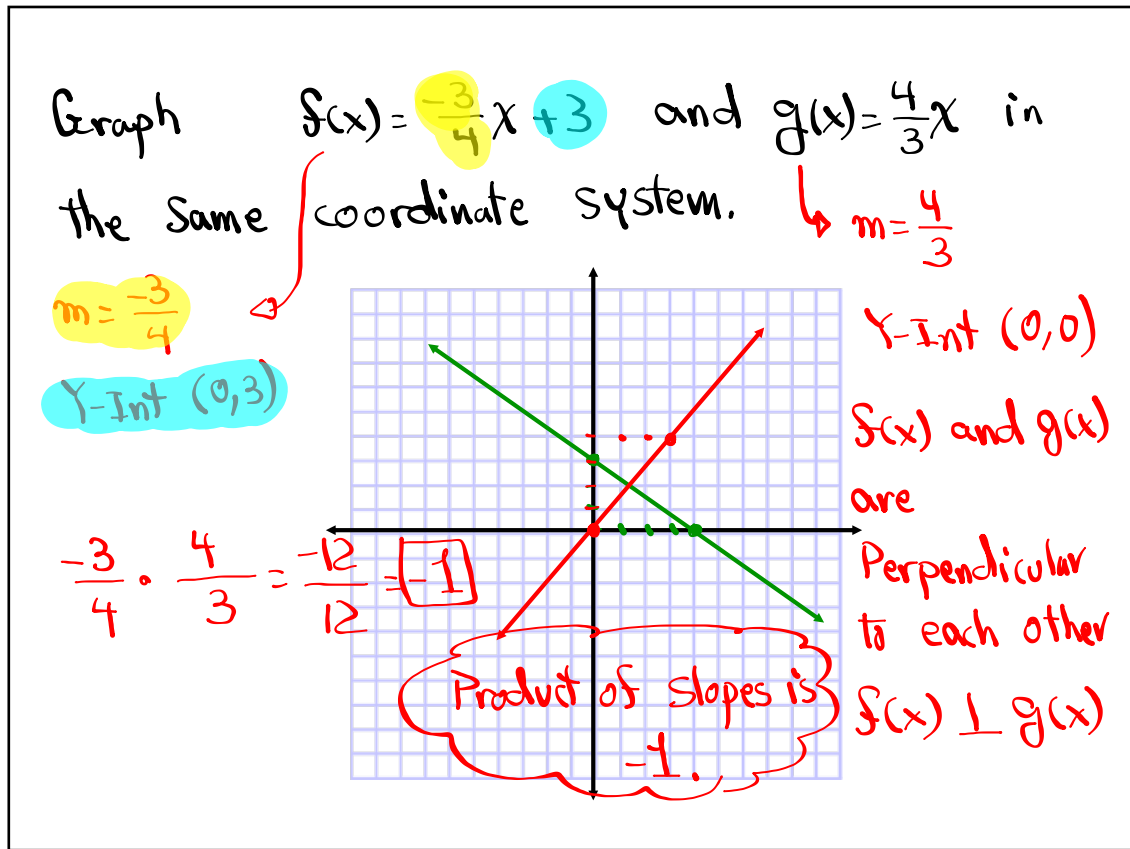 Graph f(x) = -3/4 x + 3 and g(x) = 4/3 x in
the same coordinate system.
m = 4/3
m = -3/4
Y-Int (0,3)
Y-Int (0,0)
f(x) and g(x)
are
Perpendicular
to each other
f(x) ⊥ g(x)
-3/4 · 4/3 = -12/12 = -1
Product of slopes is
-1.